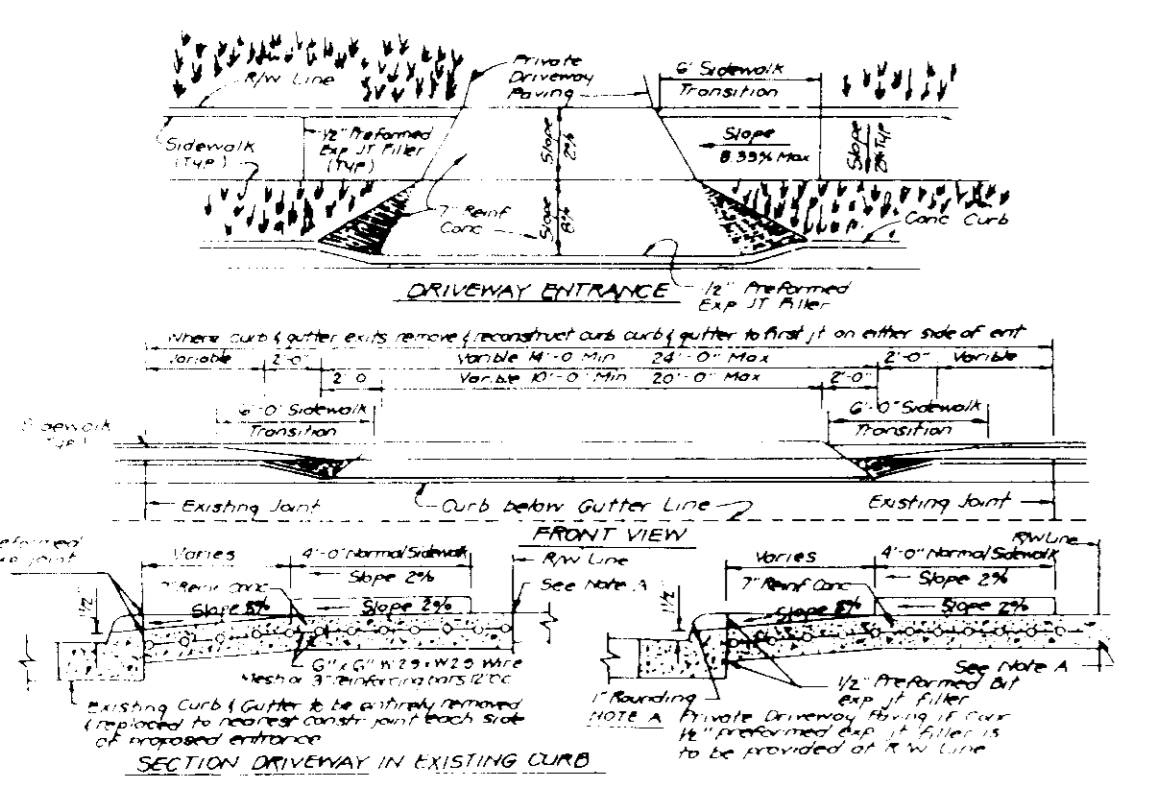 R/W Line
Private
Driveway
Paving
6' Sidewalk
Transition
Sidewalk
(Typ)
1/2" Preformed
Exp JT Filler
(Typ)
Slope
2%
Slope
8.33% Max
Slope
2% Typ
7" Reinf
Conc
Slope
8%
Conc Curb
DRIVEWAY ENTRANCE
1/2" Preformed
Exp JT Filler
Where curb & gutter exits remove & reconstruct curb curb & gutter to first jt on either side of ent
Variable 2'-0" Varible 14'-0 Min 24'-0" Max 2'-0" Variable
2'0 Varible 10'-0" Min 20'-0" Max 2'-0"
6'-0" Sidewalk
Transition
6'-0" Sidewalk
Transition
Sidewalk
Typ)
Existing Joint
Curb below Gutter Line
Existing Joint
FRONT VIEW
Varies
4'-0" Normal Sidewalk
Slope 2%
R/W Line
7" Reinf Conc
See Note A
1 1/2"
Slope 8%
Slope 2%
6" x 6" W2.9 x W2.9 Wire
Mesh or 3" reinforcing bars 12" OC
Existing Curb & Gutter to be entirely removed
& replaced to nearest constr joint each side
of proposed entrance
SECTION DRIVEWAY IN EXISTING CURB
R/W Line
Varies
4'-0" Normal Sidewalk
Slope 2%
7" Reinf Conc
1 1/2"
Slope 8%
Slope 2%
See Note A
1/2" Preformed Bit
exp jt filler
1" Rounding
NOTE A Private Driveway Paving if Conc
1/2" preformed exp jt filler is
to be provided at R W Line